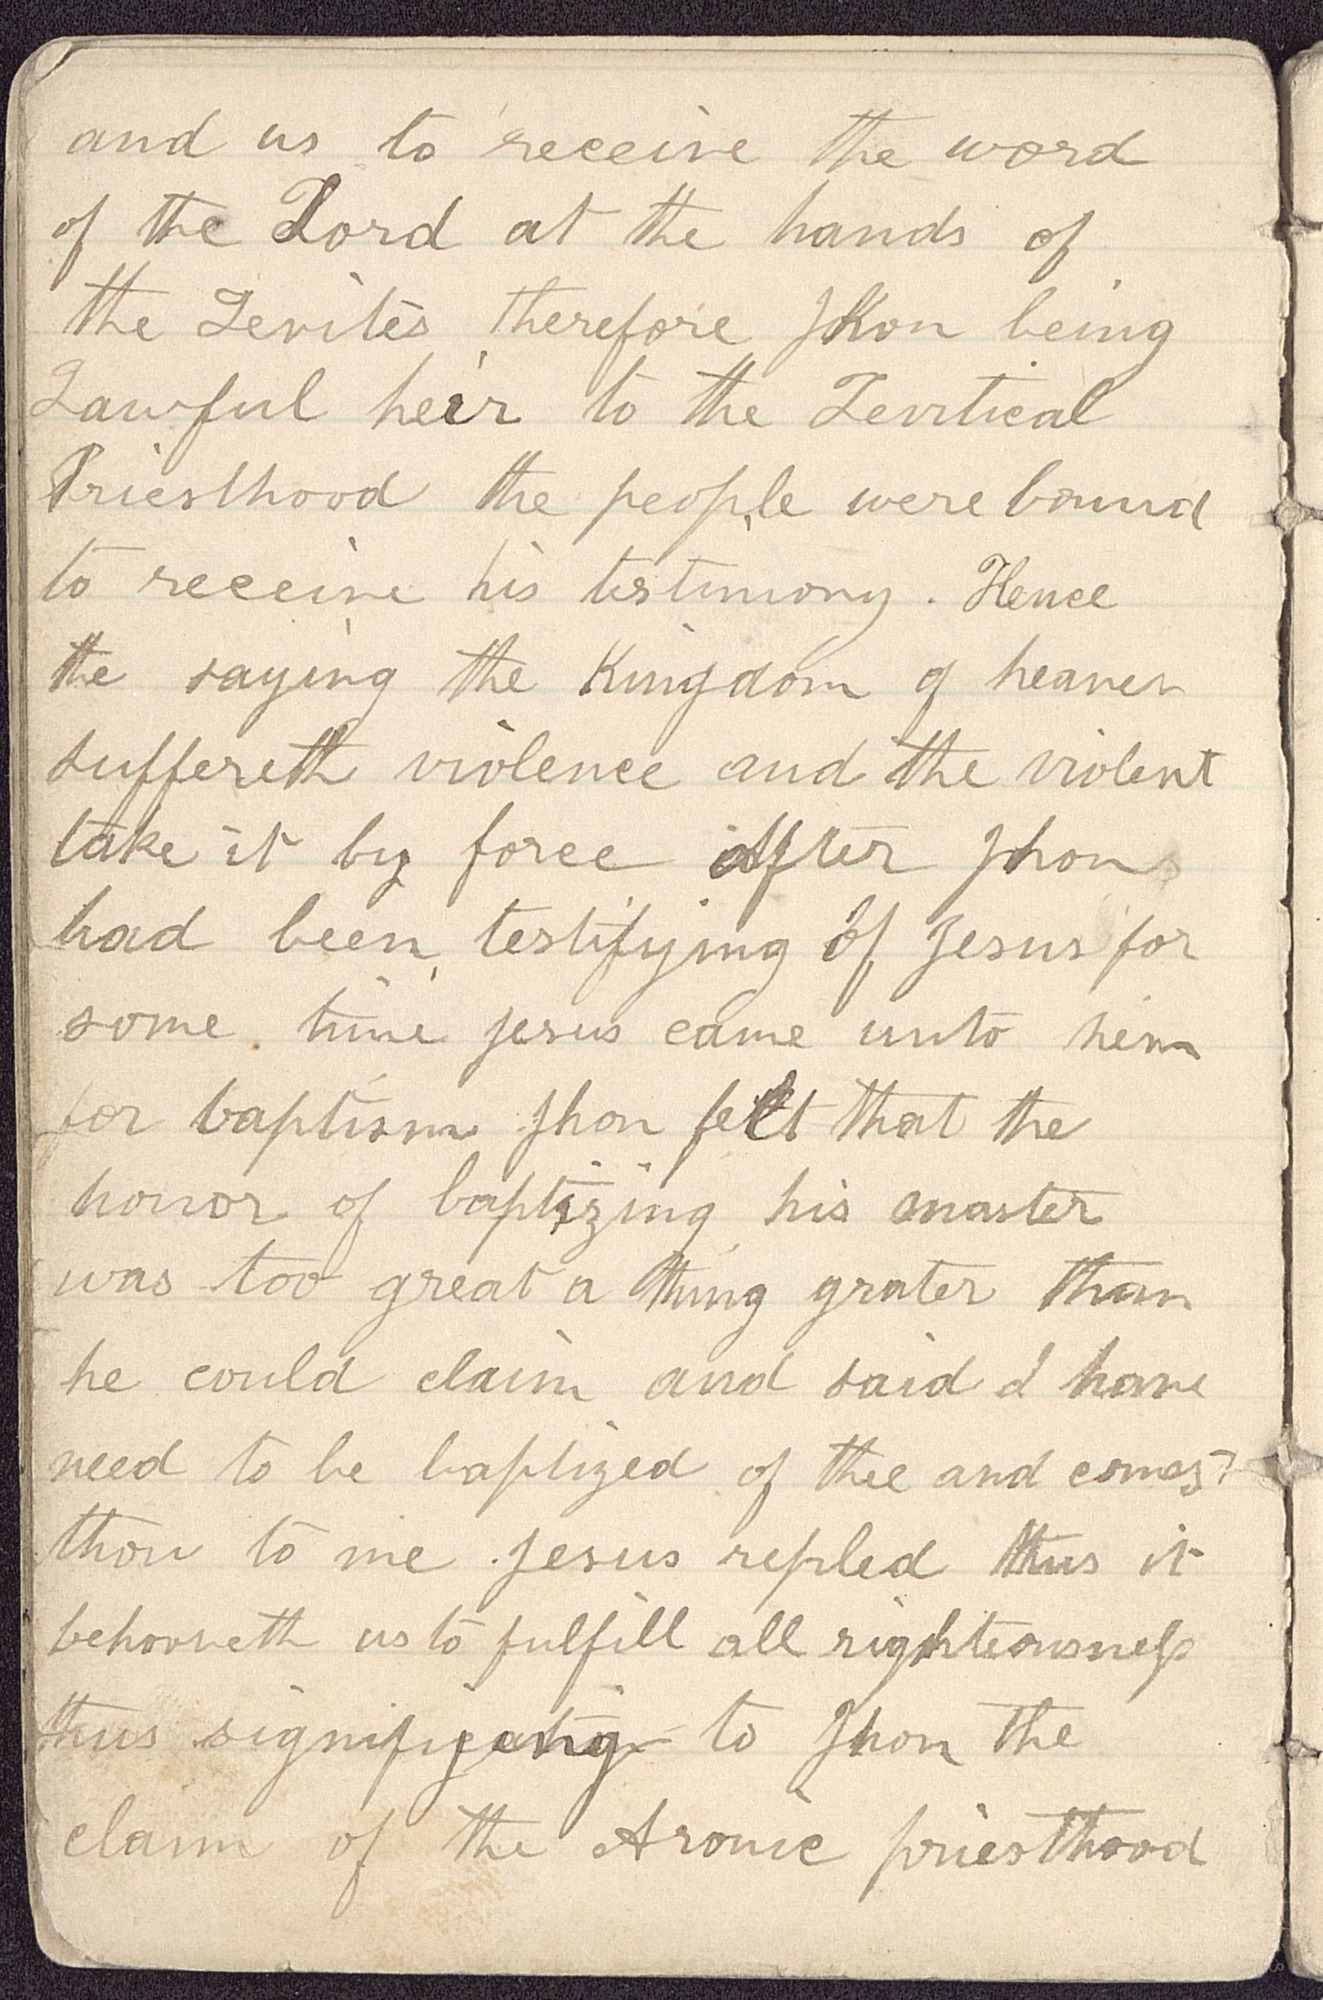 and us to receive the word
of the Lord at the hands of
the Levites therefore Jhon being
Lawful heir to the Levitical
Priesthood the people were bound
to receive his testimony. Hence
the saying the Kingdom of heaven
suffereth violence and the violent
take it by force After Jhon
had been testifying of Jesus for
some time jesus came unto him
for baptism Jhon felt that the
honor of baptizing his master
was too great a thing grater than
he could claim and said I have
need to be baptized of thee and comest
thou to me Jesus repled thus it
behooveth us to fulfill all righteousness
thus signifying to Jhon the
claim of the Aronic priesthood